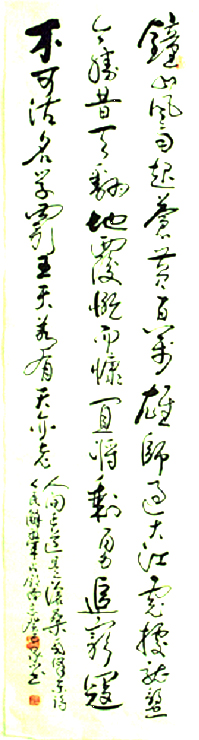 鐘山風雨起蒼黄百萬雄師過大江虎據龍盤
今勝昔天翻地覆慨而慷宜將剩勇追窮寇
不可沽名學霸王天若有天亦老
人間正道是滄桑
人民解放軍占領南京